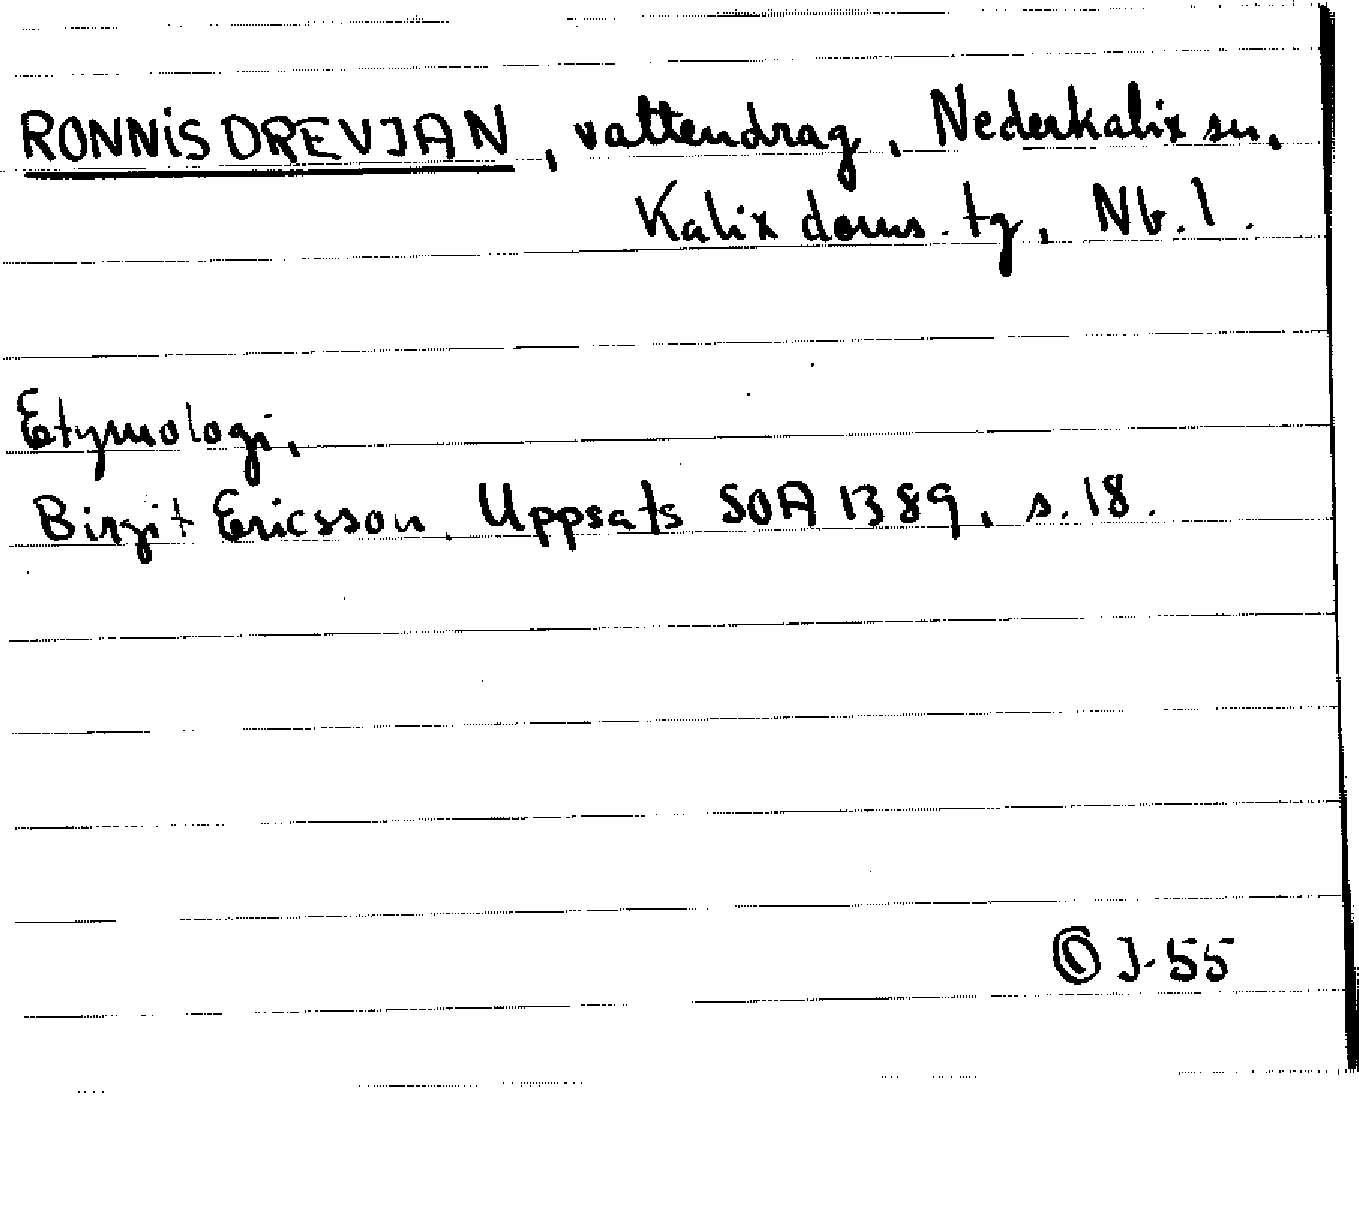 RONNiSDREVJAN, vattendrag, Nederkalix sn,
Kalix doms. tg, Nb. l.
Etymologi,
Birgit Ericsson, Uppsats SOA 1389, s. 18.
Ⓞ J-55